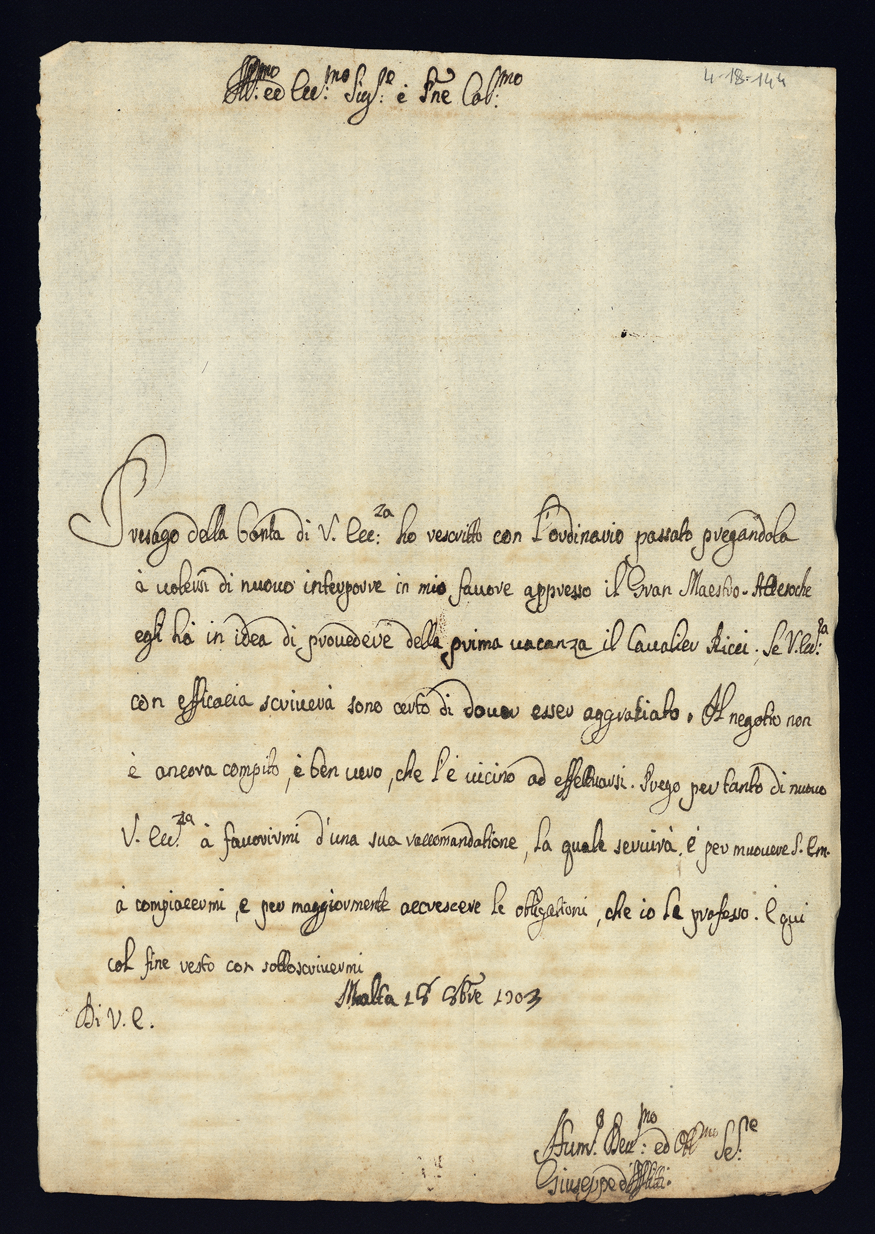 4-18-144
Ill.mo ed Ecc.mo Sig.re è Pne Col.mo
Presago della bontà di V. Ecc.za ho rescritto con l'ordinario passato pregandola
à volersi di nuovo interporre in mio favore appresso il Gran Maestro. Attesoche
egli hà in idea di provedere della prima vacanza il Cavalier Ricci. Se V. Ecc.za
con efficacia scriverà sono certo di dover esser aggratiato. Il negotio non
è ancora compito, è ben vero, che l'è vicino ad effettuarsi. Prego per tanto di nuovo
V. Ecc.za à favorirmi d'una sua raccomandatione, la quale servirà, é per muovere S. Em.
à compiacermi, e per maggiormente accrescere le obligationi, che io le professo. E qui
col fine resto con sottoscrivermi
Malta 18 8bre 1703
Di V. E.
Hum.o Dev.mo ed Obl.mo Se.re
Giuseppe d'